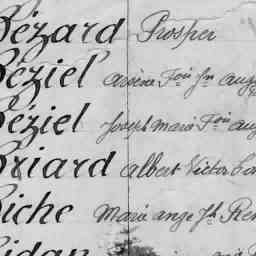 Bézard Prosper
Béziel arsène F.ois J.n aug
Béziel Joseph marie F.ois aug
Briard albert Victor
Biche Marie ange J.h
Bidan